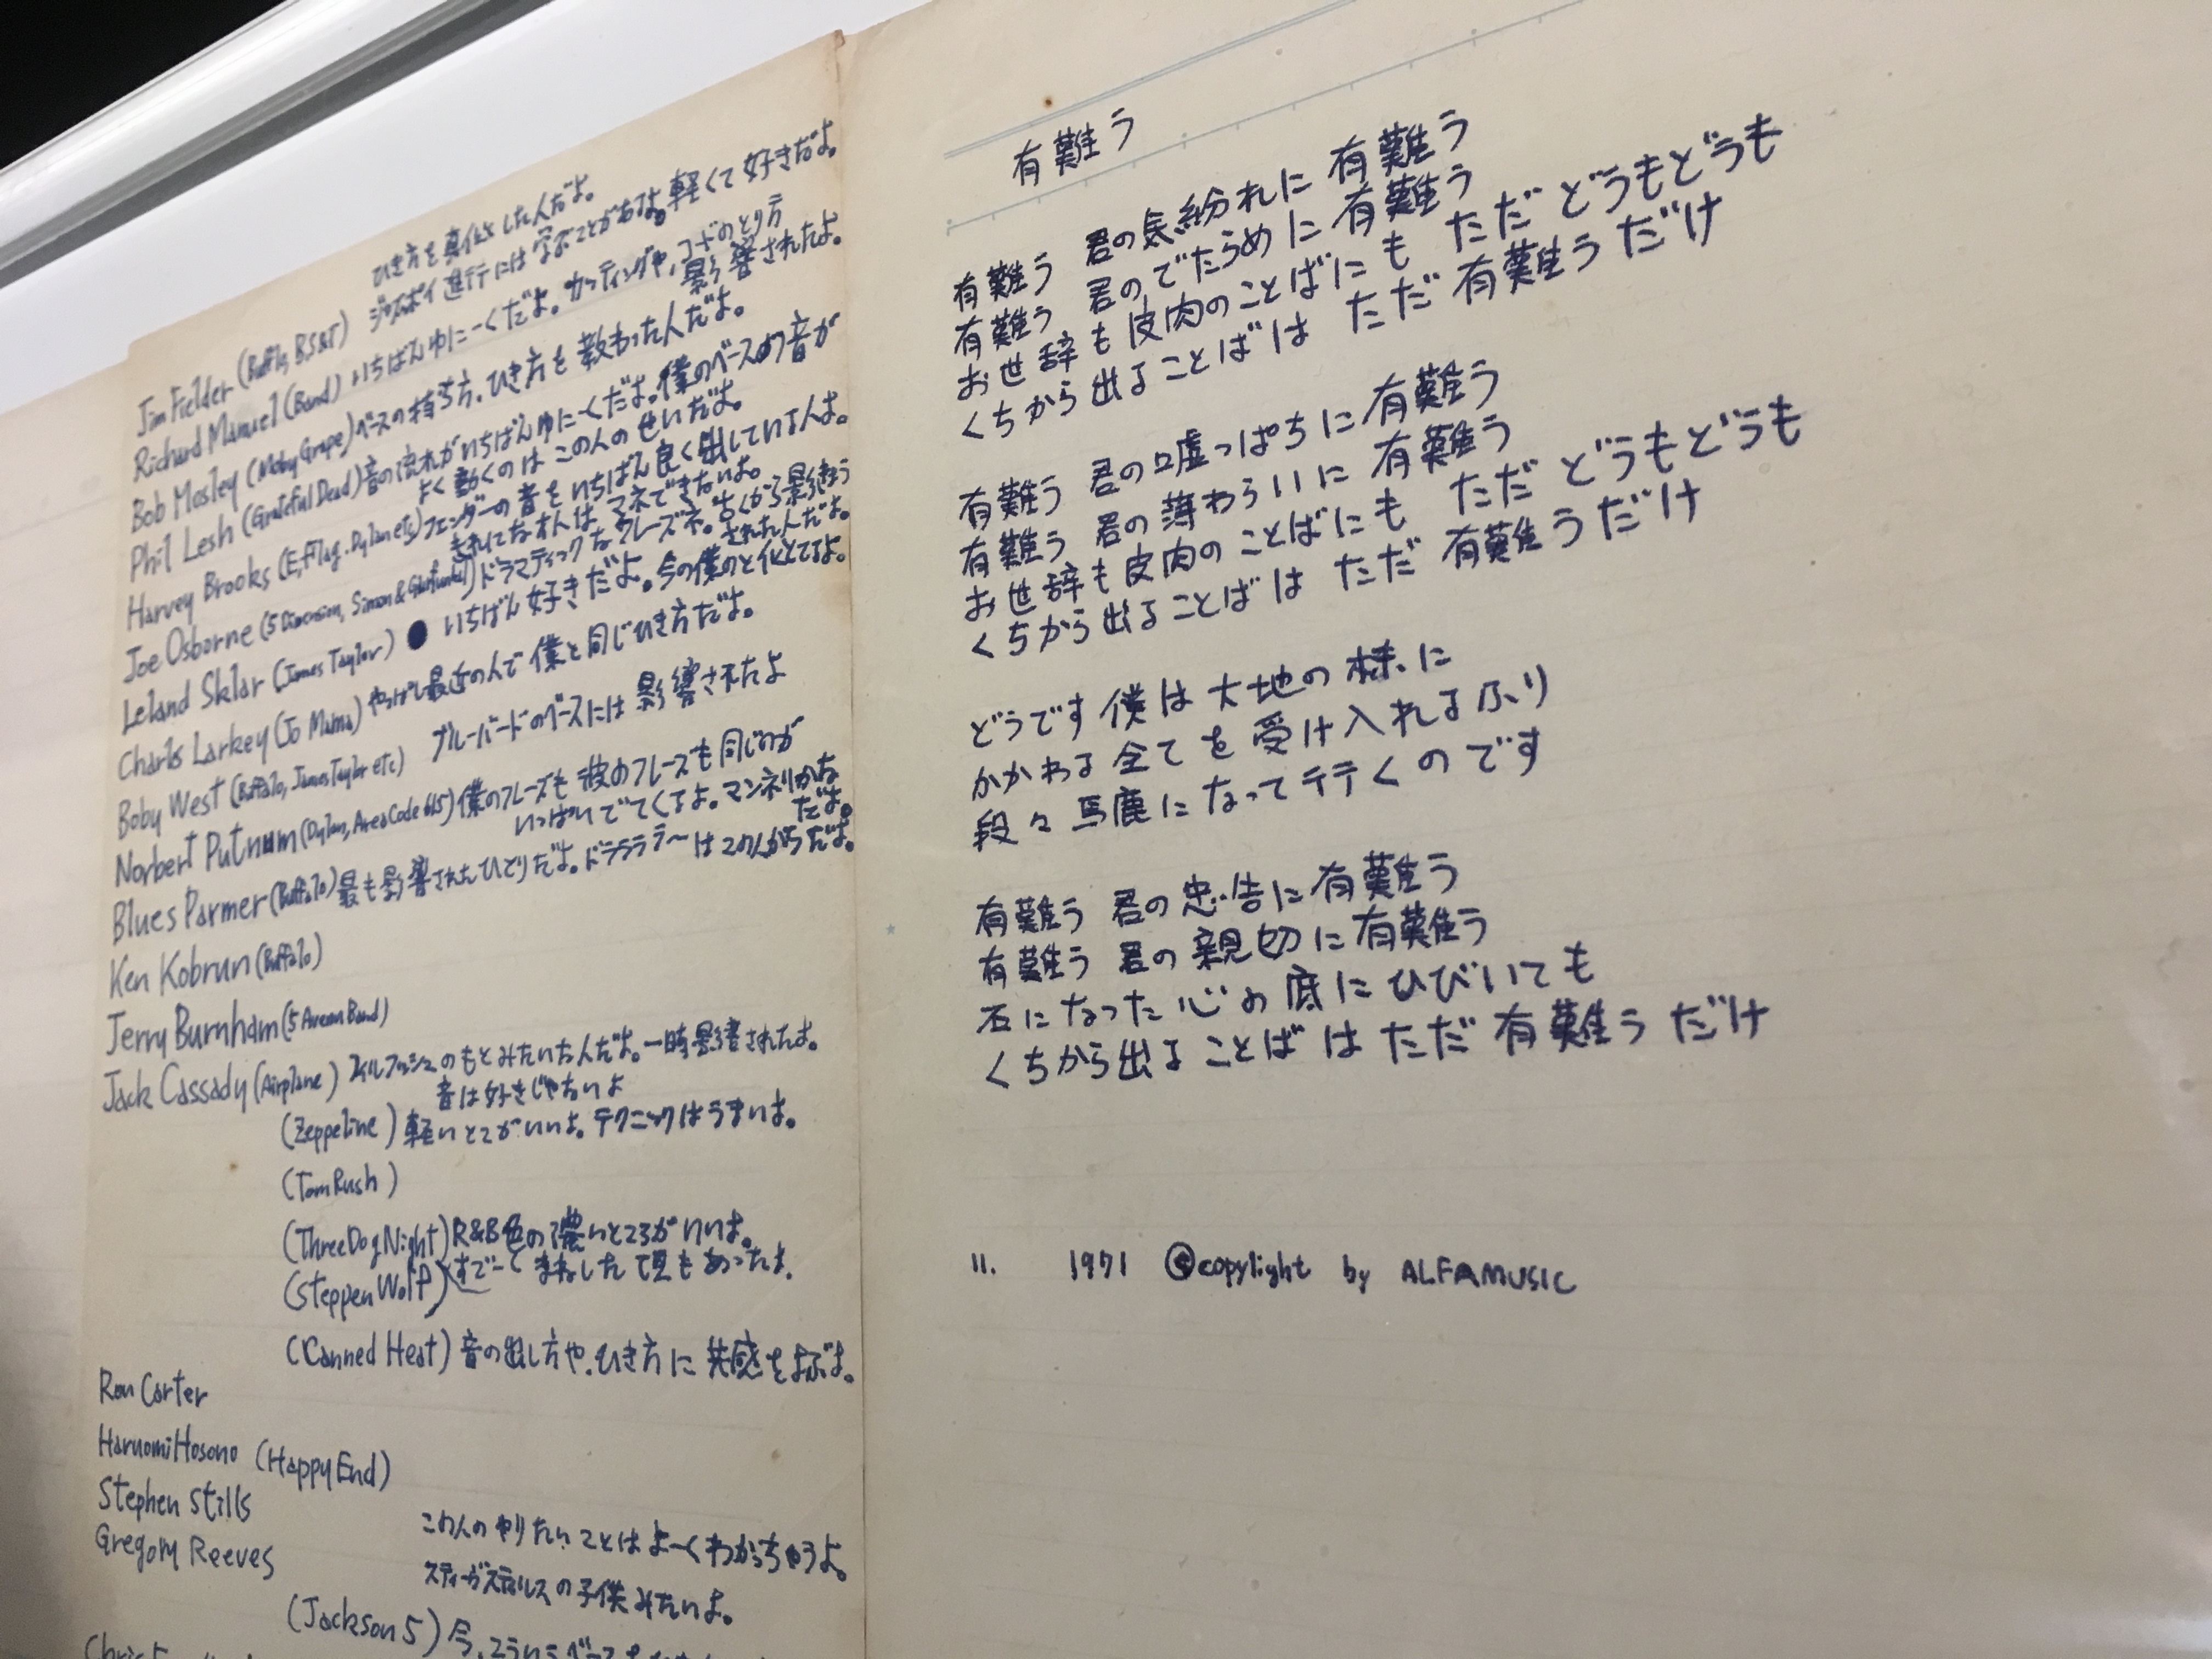 ひき方を真似した人だよ。
Jim Fielder (Buffalo, BS&T) ジャズポイ進行には学ぶことがあるよ。軽くて好きだよ。
Richard Manuel (Band) いちばんゆにーくだよ。カッティングや、コードのとり方
影響されたよ。
Bob Mosley (Moby Grape) ベースの持ち方、ひき方を教わった人だよ。
Phil Lesh (Grateful Dead) 音の流れがいちばんゆにーくだよ。僕のベースの音が
よく動くのはこの人のせいだよ。
Harvey Brooks (E, Flag. Dylan etc) フェンダーの音をいちばん良く出している人よ。
マネできないよ。
Joe Osborne (5 Dimension, Simon & Garfunkel) ドラマティックなフレーズネ。古くから影響
された人だよ。
Leland Sklar (James Taylor) ● いちばん好きだよ。今の僕のと似てるよ。
Charls Larkey (Jo Mama) やっぱし最近の人で僕と同じひき方だよ。
Boby West (Buffalo, James Taylor etc) ブルーバードのベースには影響されたよ
Norbert Putnum (Dylan, Area Code 615) 僕のフレーズも彼のフレーズも同じのが
いっぱいでてくるよ。マンネリかな
だよ。
Blues Parmer (Buffalo) 最も影響されたひとりだよ。ドラララ〜はこの人からだよ。
Ken Kobrun (Buffalo)
Jerry Burnham (5 Aveen Band)
Jack Cassady (Airplane) フィルレッシュのもとみたいな人だよ。一時影響されたよ。
音は好きじゃないよ
(Zeppeline) 軽いとこがいいよ。テクニックはうまいよ。
(Tom Rush)
(Three Dog Night) R&B色の濃いところがいいよ。
(Steppen Wolf) すごーくまねした頃もあったよ.
(Canned Heat) 音の出し方や、ひき方に共感をよぶよ。
Ron Carter
Haruomi Hosono (Happy End)
Stephen Stills
この人のやりたいことはよーくわかっちゃうよ。
Gregory Reeves
スティーヴスティルスの子供みたいよ。
(Jackson 5) 今、こういうベース
有難う
有難う 君の気紛れに 有難う
有難う 君のでたらめに 有難う
お世辞も皮肉のことばにも ただ どうもどうも
くちから出ることばは ただ 有難うだけ
有難う 君の嘘っぱちに 有難う
有難う 君の薄わらいに 有難う
お世辞も皮肉のことばにも ただ どうもどうも
くちから出ることばは ただ 有難うだけ
どうです 僕は大地の様に
かかわる全てを受け入れるふり
段々馬鹿になって行くのです
有難う 君の忠告に 有難う
有難う 君の親切に 有難う
石になった心の底にひびいても
くちから出ることばは ただ 有難うだけ
11. 1971 ©copylight by ALFAMUSIC